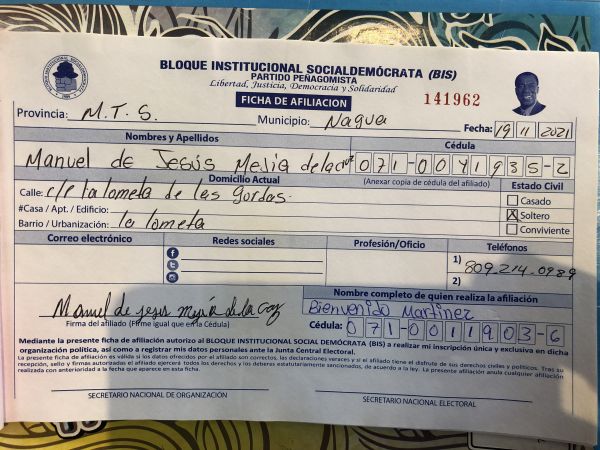 BLOQUE INSTITUCIONAL SOCIALDEMÓCRATA (BIS)
PARTIDO PEÑAGOMISTA
Libertad, Justicia, Democracia y Solidaridad
FICHA DE AFILIACION
141962
Provincia: M.T.S. Municipio: Nagua Fecha: 19 11 2021
Nombres y Apellidos Cédula
Manuel de Jesús Mejia de la cruz 071-0041935-2
Domicilio Actual (Anexar copia de cédula del afiliado) Estado Civil
Calle: c/e la lometa de las gordas. Casado
#Casa / Apt. / Edificio: X Soltero
Barrio / Urbanización: la lometa Conviviente
Correo electrónico Redes sociales Profesión/Oficio Teléfonos
1) 809-214-0989
2)
Nombre completo de quien realiza la afiliación
Manuel de jesus mejía de la Bienvenido Martinez
Firma del afiliado (Firme igual que en la Cédula) Cédula: 071-0011903-6
Mediante la presente ficha de afiliación autorizo al BLOQUE INSTITUCIONAL SOCIAL DEMÓCRATA (BIS) a realizar mi inscripción única y exclusiva en dicha
organización política, así como a registrar mis datos personales ante la Junta Central Electoral.
La presente ficha de afiliación es válida si los datos ofrecidos por el afiliado son correctos, las declaraciones veraces y si el afiliado tiene el disfrute de sus derechos civiles y políticos. Tras su
recepción, sello y firmas autorizadas el afiliado ejercerá todos los derechos y los deberes estatutariamente sancionados, de acuerdo a la ley. La presente afiliación anula cualquier afiliación
realizada con anterioridad a la fecha que aparece en esta ficha.
SECRETARIO NACIONAL DE ORGANIZACIÓN SECRETARIO NACIONAL ELECTORAL